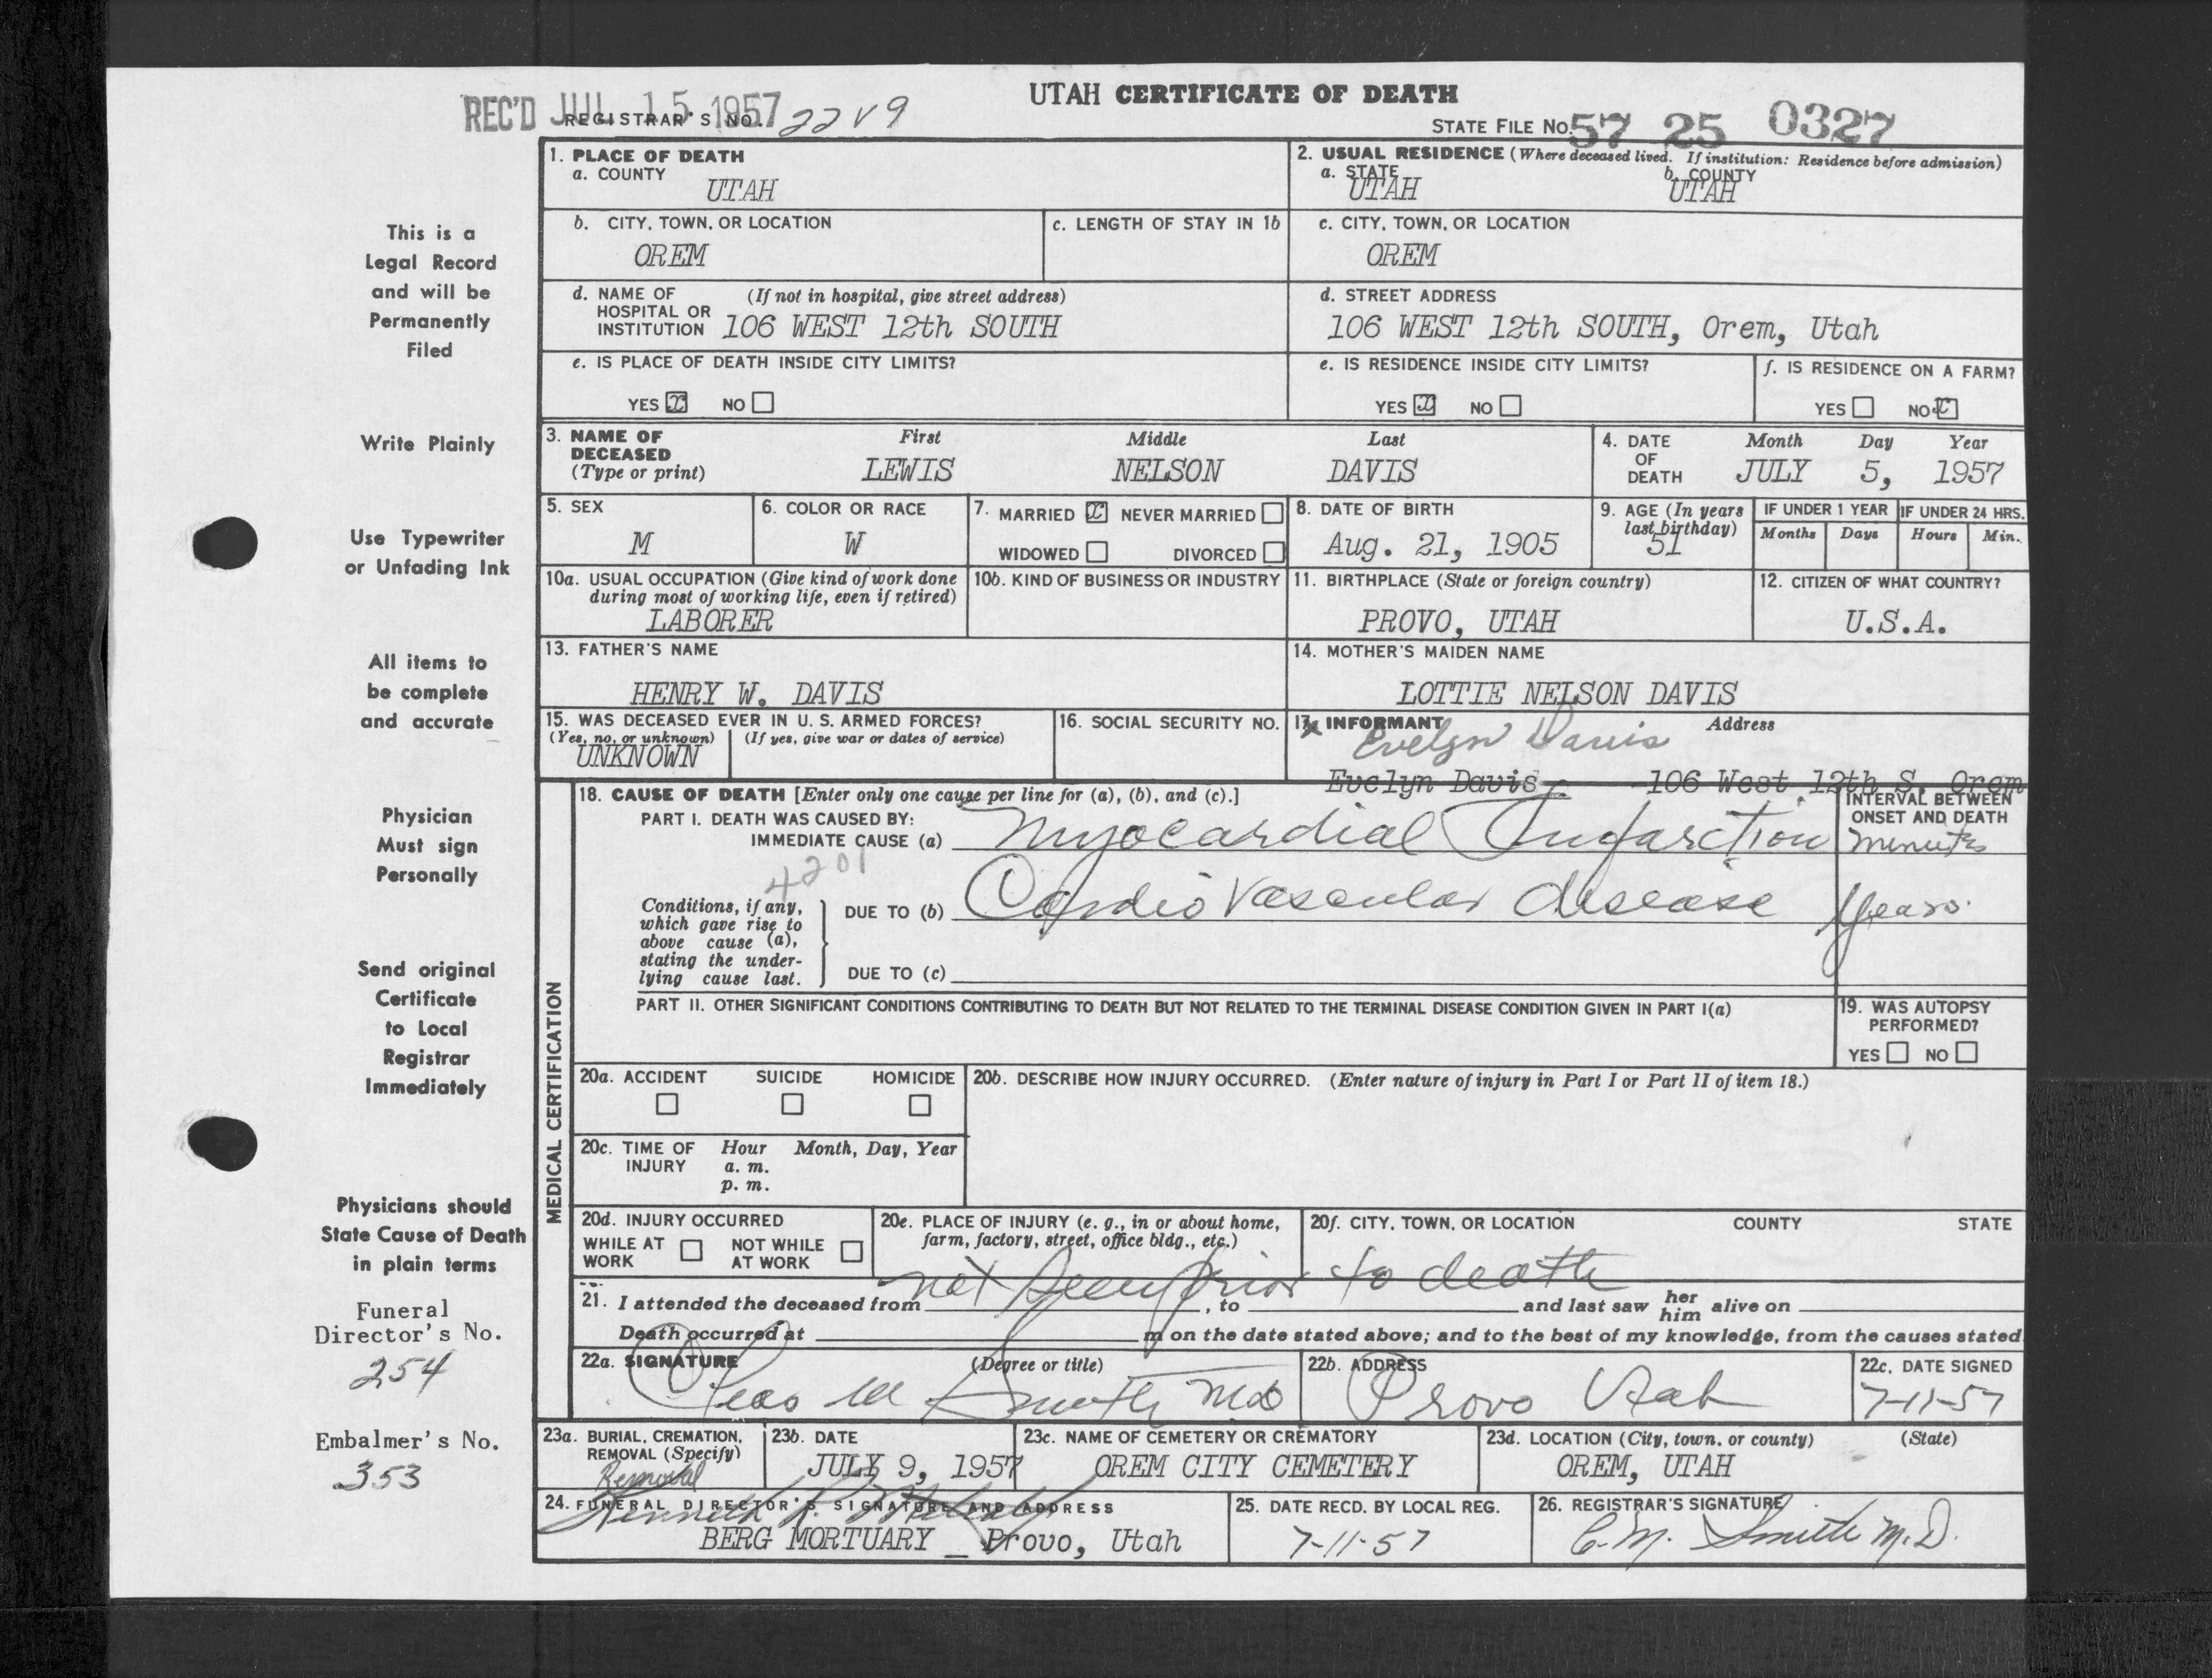 UTAH CERTIFICATE OF DEATH
REC'D JUL 15 1957
REGISTRAR'S NO.
STATE FILE No. 57 25 0327
1. PLACE OF DEATH
a. COUNTY
UTAH
2. USUAL RESIDENCE (Where deceased lived. If institution: Residence before admission)
a. STATE b. COUNTY
UTAH UTAH
b. CITY, TOWN, OR LOCATION
OREM
c. LENGTH OF STAY IN 1b
c. CITY, TOWN, OR LOCATION
OREM
d. NAME OF HOSPITAL OR INSTITUTION (If not in hospital, give street address)
106 WEST 12th SOUTH
d. STREET ADDRESS
106 WEST 12th SOUTH, Orem, Utah
e. IS PLACE OF DEATH INSIDE CITY LIMITS?
YES x NO
e. IS RESIDENCE INSIDE CITY LIMITS?
YES x NO
f. IS RESIDENCE ON A FARM?
YES NO x
3. NAME OF DECEASED (Type or print)
First Middle Last
LEWIS NELSON DAVIS
4. DATE OF DEATH
Month Day Year
JULY 5, 1957
5. SEX
M
6. COLOR OR RACE
W
7. MARRIED x NEVER MARRIED
WIDOWED DIVORCED
8. DATE OF BIRTH
Aug. 21, 1905
9. AGE (In years last birthday)
51
IF UNDER 1 YEAR
Months Days
IF UNDER 24 HRS.
Hours Min.
10a. USUAL OCCUPATION (Give kind of work done during most of working life, even if retired)
LABORER
10b. KIND OF BUSINESS OR INDUSTRY
11. BIRTHPLACE (State or foreign country)
PROVO, UTAH
12. CITIZEN OF WHAT COUNTRY?
U.S.A.
13. FATHER'S NAME
HENRY W. DAVIS
14. MOTHER'S MAIDEN NAME
LOTTIE NELSON DAVIS
15. WAS DECEASED EVER IN U. S. ARMED FORCES?
(Yes, no, or unknown) (If yes, give war or dates of service)
UNKNOWN
16. SOCIAL SECURITY NO.
17. INFORMANT Address
Evelyn Davis
Evelyn Davis - 106 West 12th S. Orem
MEDICAL CERTIFICATION
18. CAUSE OF DEATH [Enter only one cause per line for (a), (b), and (c).]
INTERVAL BETWEEN ONSET AND DEATH
PART I. DEATH WAS CAUSED BY:
IMMEDIATE CAUSE (a) Myocardial Infarction minutes
4201
Conditions, if any, which gave rise to above cause (a), stating the underlying cause last.
DUE TO (b) Cardio Vascular disease Years
DUE TO (c)
PART II. OTHER SIGNIFICANT CONDITIONS CONTRIBUTING TO DEATH BUT NOT RELATED TO THE TERMINAL DISEASE CONDITION GIVEN IN PART I(a)
19. WAS AUTOPSY PERFORMED?
YES NO
20a. ACCIDENT SUICIDE HOMICIDE
20b. DESCRIBE HOW INJURY OCCURRED. (Enter nature of injury in Part I or Part II of item 18.)
20c. TIME OF INJURY Hour Month, Day, Year
a. m.
p. m.
20d. INJURY OCCURRED
WHILE AT WORK NOT WHILE AT WORK
20e. PLACE OF INJURY (e. g., in or about home, farm, factory, street, office bldg., etc.)
20f. CITY, TOWN, OR LOCATION COUNTY STATE
not seen prior to death
21. I attended the deceased from , to and last saw her him alive on
Death occurred at m on the date stated above; and to the best of my knowledge, from the causes stated
22a. SIGNATURE (Degree or title)
M Smith MD
22b. ADDRESS
Provo Utah
22c. DATE SIGNED
7-11-57
23a. BURIAL, CREMATION, REMOVAL (Specify)
Removal
23b. DATE
JULY 9, 1957
23c. NAME OF CEMETERY OR CREMATORY
OREM CITY CEMETERY
23d. LOCATION (City, town, or county) (State)
OREM, UTAH
24. FUNERAL DIRECTOR'S SIGNATURE AND ADDRESS
Kenneth R.
BERG MORTUARY Provo, Utah
25. DATE RECD. BY LOCAL REG.
7-11-57
26. REGISTRAR'S SIGNATURE
C.M. Smith M.D.
This is a
Legal Record
and will be
Permanently
Filed
Write Plainly
Use Typewriter
or Unfading Ink
All items to
be complete
and accurate
Physician
Must sign
Personally
Send original
Certificate
to Local
Registrar
Immediately
Physicians should
State Cause of Death
in plain terms
Funeral
Director's No.
254
Embalmer's No.
353